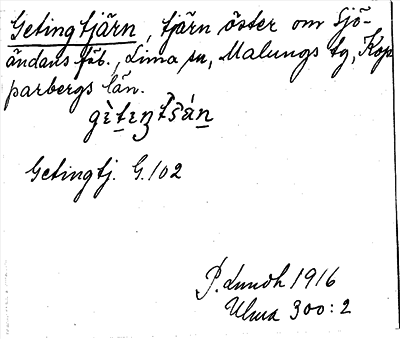 Getingtjärn, tjärn öster om Sjö-
ändans fäb., Lima sn, Malungs tg, Kop
parbergs län.
gè̀tıŋtšá̀n
Getingtj. G.102
P. Lundh 1916
Ulma 300:2